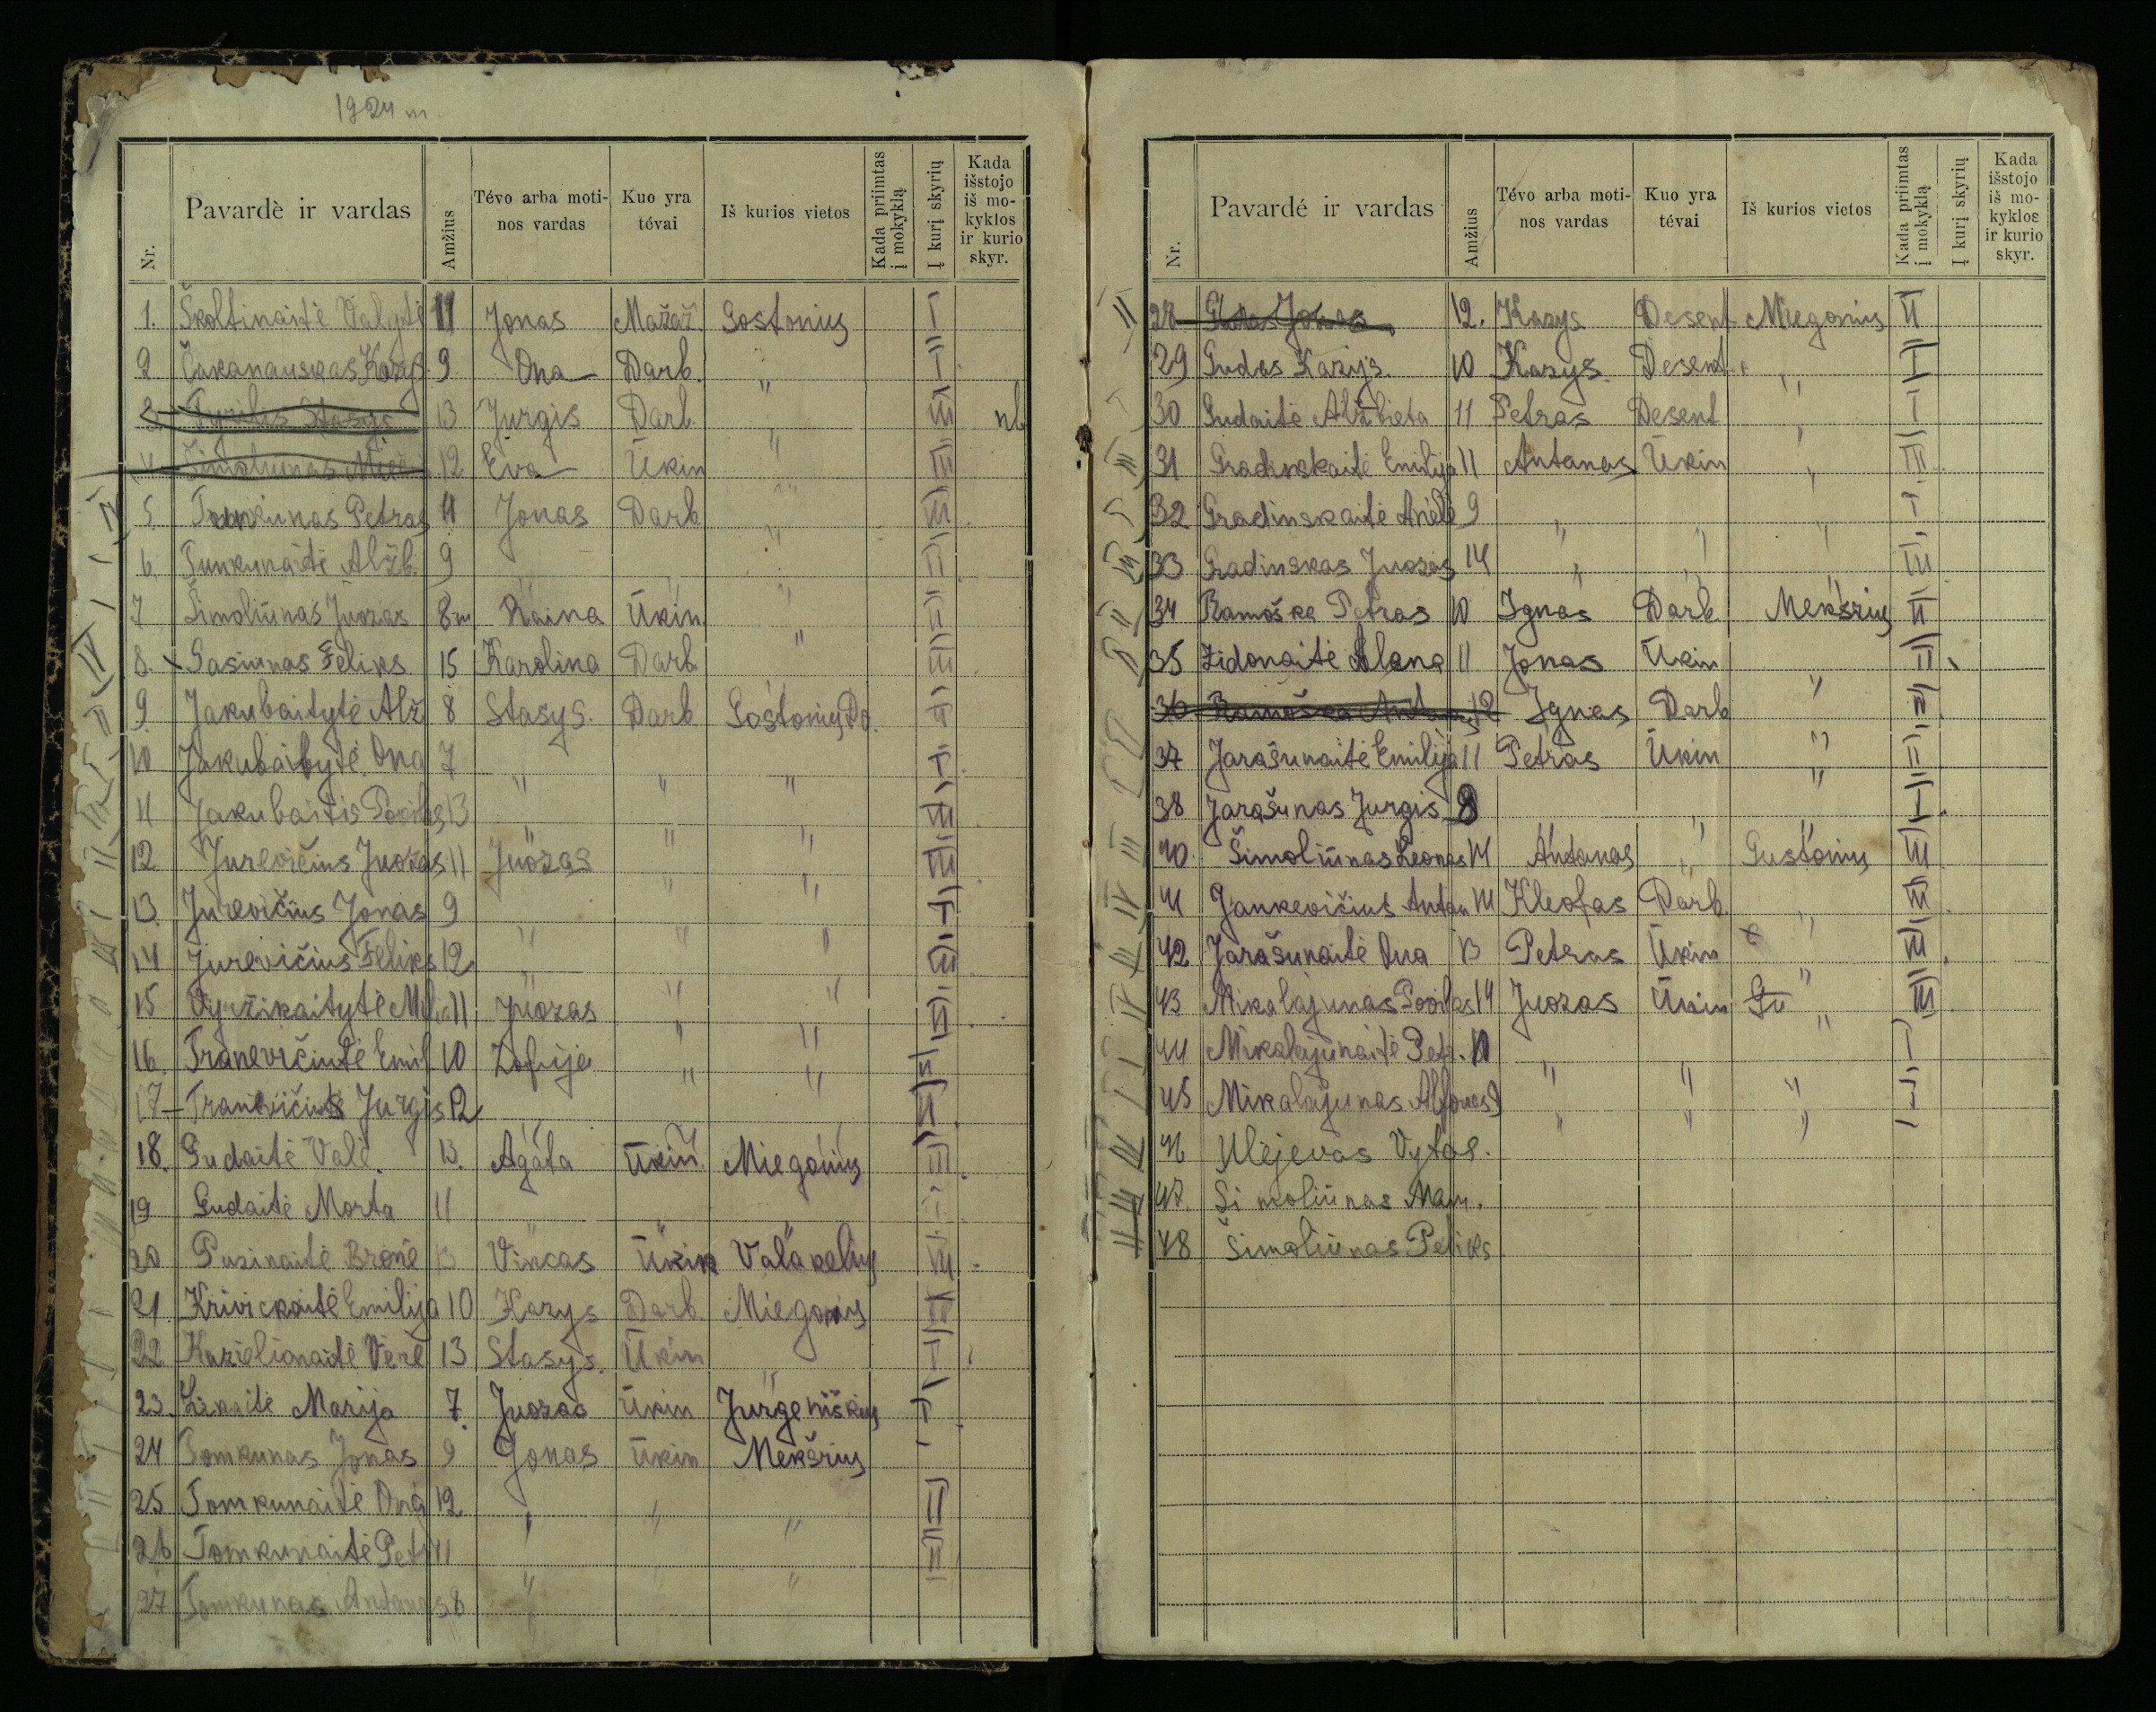 1924 m.
Nr. Pavardė ir vardas Amžius Tėvo arba motinos vardas Kuo yra tėvai Iš kurios vietos Kada priimtas į mokyklą Į kurį skyrių Kada išstojo iš mokyklos ir kurio skyr.
1. Školtinaitė Valytė 11 Jonas Mažaž. Gostonių I
2 Čakanauskas Kazys 9 Ona Darb. " I
3 Tyrilis Stasys 13 Jurgis Darb. " III nb
4 Šimoliunas Mič 12 Eva Ūkin " III
5 Tunkunas Petras 11 Jonas Darb " III
6. Tunkunaitė Alžb. 9 " " " II
7 Šimoliūnas Juozas 8 m Ūkin. " II
8. Gasiunas Feliks 15 Karolina Darb " III
9. Jakubaitytė Alž 8 Stasys. Darb Gostonių Dv. II
10 Jakubaitytė Ona 7 " " " I
11 Jakubaitis Povilas 13 " " " III
12 Jurevičius Juozas 11 Juozas " " III
13. Jurevičius Jonas 9 " " " I
14 Jurevičius Feliks 12 " " " III
15 Vyržikaitytė 11 Juozas " " II
16. Tranevičiutė Emil 10 Zofija " " II
17 Tranevičius Jurgis 12 " " " II
18. Gudaitė Valė. 13. Agata Ūkin. Miegonių III
19 Gudaitė Morta 11 " " " I
20 Puzinaitė Bronė 13 Vincas Ūkin Valakelių III
21 Krivickaitė Emilija 10 Kazys Darb. Miegonių
22 Kazielionaitė Verė 13 Stasys. Ūkin " I
23. Marija 7. Juozas Ūkin Jurgeniškių I
24 Tomkunas Jonas 9 Jonas Ūkin Mekšrių I
25 Tomkunaitė Ona 12 " " " II
26 Tomkunaitė Petr 11 " " " II
27 Tomkunas Antanas 8 "
Nr. Pavardė ir vardas Amžius Tėvo arba motinos vardas Kuo yra tėvai Iš kurios vietos Kada priimtas į mokyklą Į kurį skyrių Kada išstojo iš mokyklos ir kurio skyr.
28 Gudas Jonas 12. Kazys Desent Miegonių II
29 Gudas Kazys. 10 Kazys. Desent. " I
30 Gudaitė Alžbieta 11 Petras Desent " I
31 Gradinskaitė Emilija 11 Antanas Ūkin " III
32 Gradinskaitė Anėlė 9 " " " I
33 Gradinskas Juozas 14 " " " III
34 Ramoška Petras 10 Ignas Darb. Mekšrių II
35 Židonaitė Alena 11 Jonas Ūkin " II
36 Ramoška Antan 12 Ignas Darb " II
37 Jarašunaitė Emilija 11 Petras Ūkin " II
38 Jarašunas Jurgis 8 " " " I
40. Šimoliūnas Leonas 14 Antanas " Gustonių III
41 Jankevičius Antan 14 Kleofas Darb. " III
42 Jarašunaitė Ona 13 Petras Ūkin x " III
43 Mikalajunas Povilas 14 Juozas Ūkin Gu " III
44 Mikalajunaitė Petr. 11 " " " I
45 Mikalajunas Alfonas 9 " " " I
46 Ulejevas Vytas.
47. Simoliūnas Man.
48 Šimoliūnas Peliks